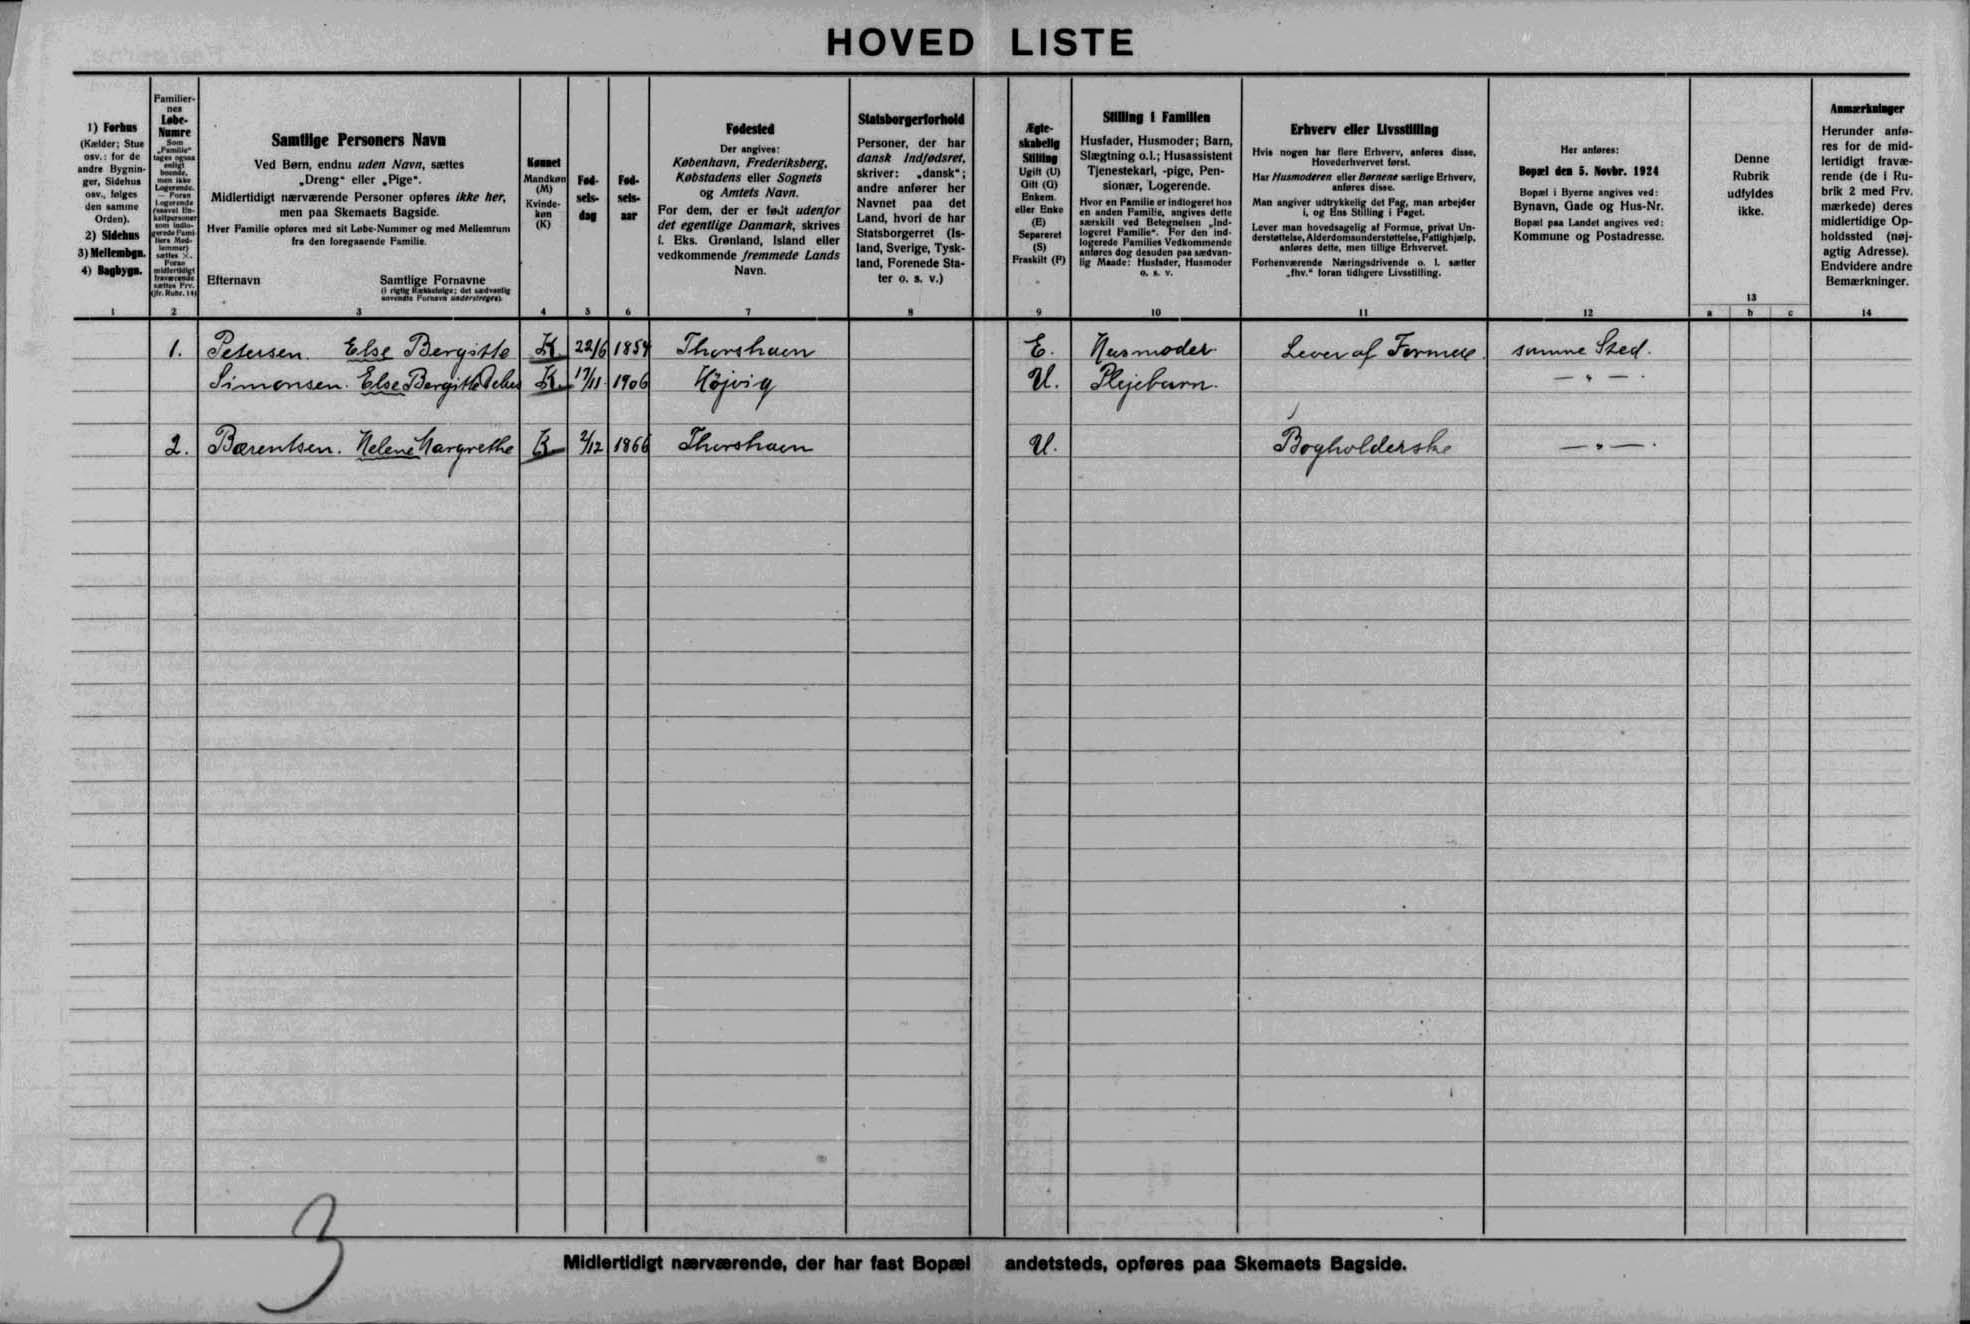 HOVED LISTE
1) Forhus
(Kælder; Stue
osv.: for de
andre Bygnin-
ger, Sidehus
osv., følges
den samme
Orden).
2) Sidehus
3) Mellembgn.
4) Bagbygn.
1
Familier-
nes
Løbe-
Numre
Som
„Familie“
tages ogsaa
enligt
boende,
men ikke
Logerende.
— Foran
Logerende
sættes ×.
Foran
midlertidigt
fraværende
sættes Frv.
(jfr. Rubr. 14)
2
Samtlige Personers Navn
Ved Børn, endnu uden Navn, sættes
„Dreng“ eller „Pige“.
Midlertidigt nærværende Personer opføres ikke her,
men paa Skemaets Bagside.
Hver Familie opføres med sit Løbe-Nummer og med Mellemrum
fra den foregaaende Familie.
Efternavn Samtlige Fornavne
(i rigtig Rækkefølge; det sædvanlig
anvendte Fornavn understreges).
3
Kønnet
Mandkøn
(M)
Kvinde-
køn
(K)
4
Fød-
sels-
dag
5
Fød-
sels-
aar
6
Fødested
Der angives:
København, Frederiksberg,
Købstadens eller Sognets
og Amtets Navn.
For dem, der er født udenfor
det egentlige Danmark, skrives
f. Eks. Grønland, Island eller
vedkommende fremmede Lands
Navn.
7
Statsborgerforhold
Personer, der har
dansk Indfødsret,
skriver: „dansk“;
andre anfører her
Navnet paa det
Land, hvori de har
Statsborgerret (Is-
land, Sverige, Tysk-
land, Forenede Sta-
ter o. s. v.)
8
Ægte-
skabelig
Stilling
Ugift (U)
Gift (G)
Enkem.
eller Enke
(E)
Separeret
(S)
Fraskilt (F)
9
Stilling i Familien
Husfader, Husmoder; Barn,
Slægtning o.l.; Husassistent
Tjenestekarl, -pige, Pen-
sionær, Logerende.
Hvor en Familie er indlogeret hos
en anden Familie, angives dette
særskilt ved Betegnelsen „Ind-
logeret Familie“. For den ind-
logerede Families Vedkommende
anføres dog desuden paa sædvan-
lig Maade: Husfader, Husmoder
o. s. v.
10
Erhverv eller Livsstilling
Hvis nogen har flere Erhverv, anføres disse,
Hovederhvervet først.
Har Husmoderen eller Børnene særlige Erhverv,
anføres disse.
Man angiver udtrykkelig det Fag, man arbejder
i, og Ens Stilling i Faget.
Lever man hovedsagelig af Formue, privat Un-
derstøttelse, Alderdomsunderstøttelse, Fattighjælp,
anføres dette, men tillige Erhvervet.
Forhenværende Næringsdrivende o. l. sætter
„fhv.“ foran tidligere Livsstilling.
11
Her anføres:
Bopæl den 5. Novbr. 1924
Bopæl i Byerne angives ved:
Bynavn, Gade og Hus-Nr.
Bopæl paa Landet angives ved:
Kommune og Postadresse.
12
Denne
Rubrik
udfyldes
ikke.
13
a b c
Anmærkninger
Herunder anfø-
res for de mid-
lertidigt fravæ-
rende (de i Ru-
brik 2 med Frv.
mærkede) deres
midlertidige Op-
holdssted (nøj-
agtig Adresse).
Endvidere andre
Bemærkninger.
14
1. Petersen. Else Bergitte K. 22/6 1854 Thorshavn E. Husmoder Lever af Formue. samme Sted.
Simonsen. Else Bergitte K. 17/11 1906 Højvig U. Plejebarn. — „ — .
2. Bærentsen. Helene Margrethe K 2/12 1866 Thorshavn U. Bogholderske — „ — .
3
Midlertidigt nærværende, der har fast Bopæl andetsteds, opføres paa Skemaets Bagside.